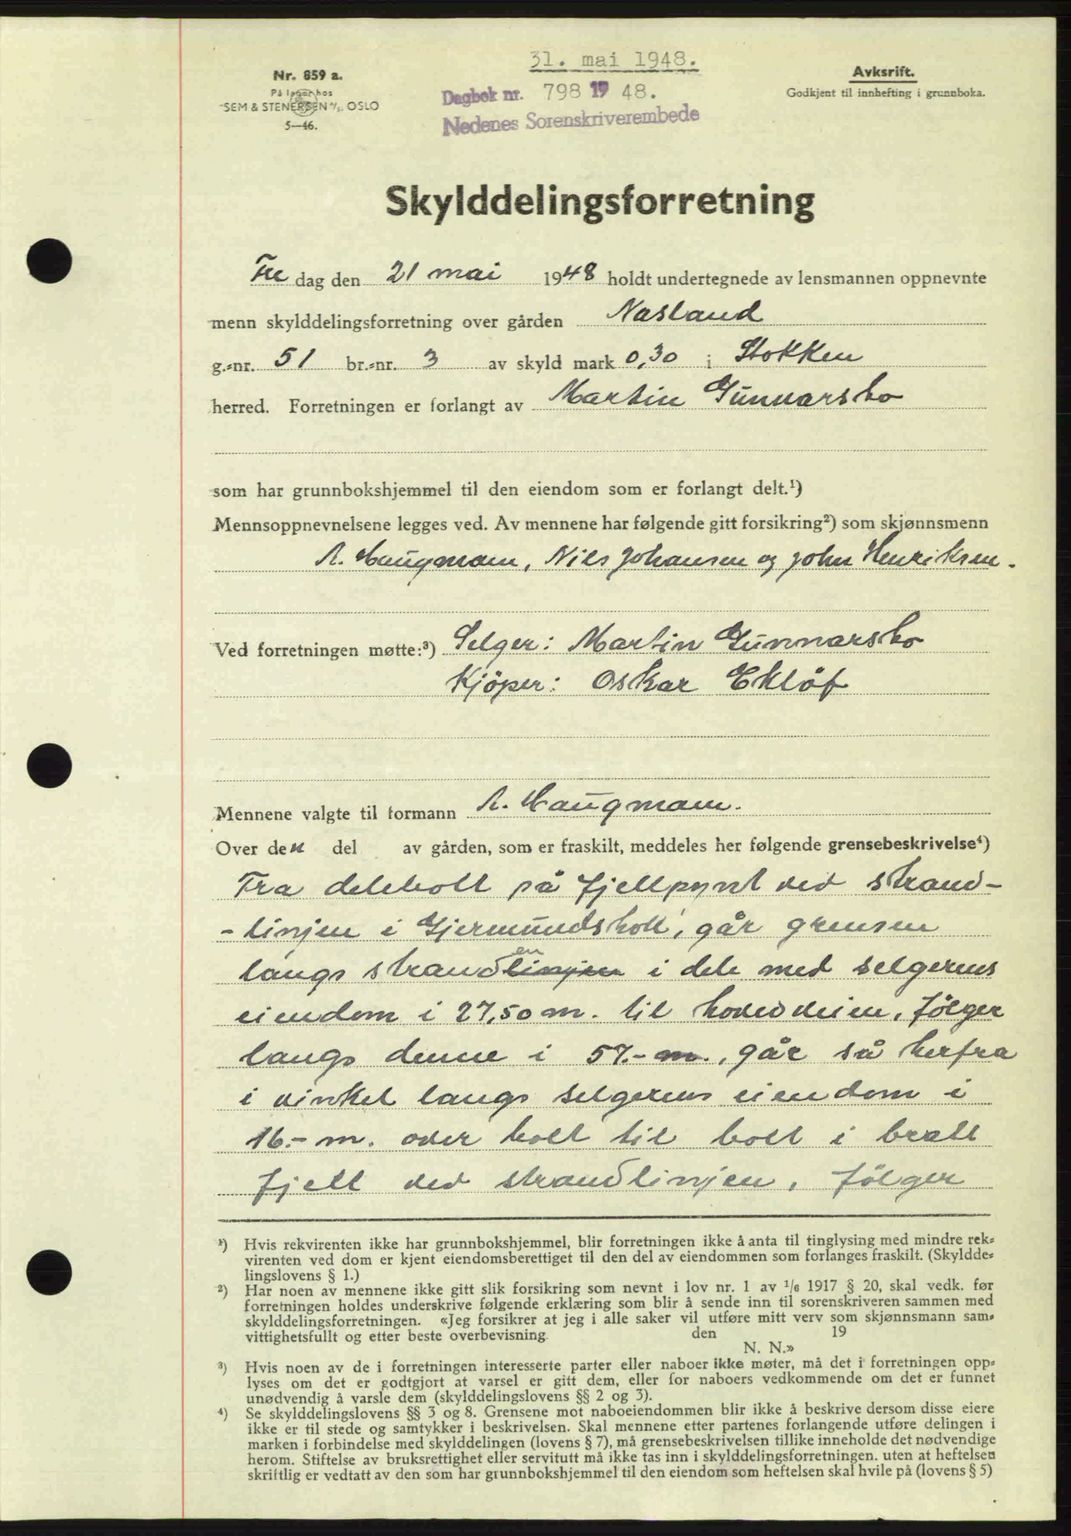 31. mai 1948.
Nr. 859 a.
På lager hos
SEM & STENERSEN A/S. OSLO
5—46.
Dagbok nr. 798 19 48.
Nedenes Sorenskriverembede
Avskrift.
Godkjent til innhefting i grunnboka.
Skylddelingsforretning
Fre dag den 21 mai 1948 holdt undertegnede av lensmannen oppnevnte
menn skylddelingsforretning over gården Næsland
g.-nr. 51 br.-nr. 3 av skyld mark 0,30 i Stokken
herred. Forretningen er forlangt av Martin Gunnarsbo
som har grunnbokshjemmel til den eiendom som er forlangt delt.¹)
Mennsoppnevnelsene legges ved. Av mennene har følgende gitt forsikring²) som skjønnsmenn
A. Haugmann, Nils Johansen og John Henriksen.
Ved forretningen møtte:³) Selger: Martin Gunnarsbo
Kjöper: Oskar Eklöf
Mennene valgte til formann A. Haugmann.
Over den del av gården, som er fraskilt, meddeles her følgende grensebeskrivelse⁴)
Fra delebolt på fjellpynt ved strand-
-linjen i Gjermundsholt, går grensen
langs stranden linjen i dele med selgerens
eiendom i 27,50 m. til hovedveien, følger
langs denne i 57.- m., går så herfra
i vinkel langs selgerens eiendom i
16.- m. over bolt til bolt i bratt
fjell ved strandlinjen, følger
¹) Hvis rekvirenten ikke har grunnbokshjemmel, blir forretningen ikke å anta til tinglysing med mindre rek-
virenten ved dom er kjent eiendomsberettiget til den del av eiendommen som forlanges fraskilt. (Skyldde-
lingslovens § 1.)
²) Har noen av mennene ikke gitt slik forsikring som nevnt i lov nr. 1 av 1/6 1917 § 20, skal vedk. før
forretningen holdes underskrive følgende erklæring som blir å sende inn til sorenskriveren sammen med
skylddelingsforretningen. «Jeg forsikrer at jeg i alle saker vil utføre mitt verv som skjønnsmann sam-
vittighetsfullt og etter beste overbevisning. den 19
N. N.»
³) Hvis noen av de i forretningen interesserte parter eller naboer ikke møter, må det i forretningen opp-
lyses om det er godtgjort at varsel er gitt dem, eller for naboers vedkommende om det er funnet
unødvendig å varsle dem (skylddelingslovens §§ 2 og 3).
⁴) Se skylddelingslovens §§ 3 og 8. Grensene mot naboeiendommen blir ikke å beskrive dersom disse eiere
ikke er til stede og samtykker i beskrivelsen. Skal mennene etter partenes forlangende utføre delingen i
marken i forbindelse med skylddelingen (lovens § 7), må grensebeskrivelsen tillike inneholde det nødvendige
herom. Stiftelse av bruksrettighet eller servitutt må ikke tas inn i skylddelingsforretningen. uten at heftelsen
skriftlig er vedtatt av den som har grunnbokshjemmel til den eiendom som heftelsen skal hvile på (lovens § 5)